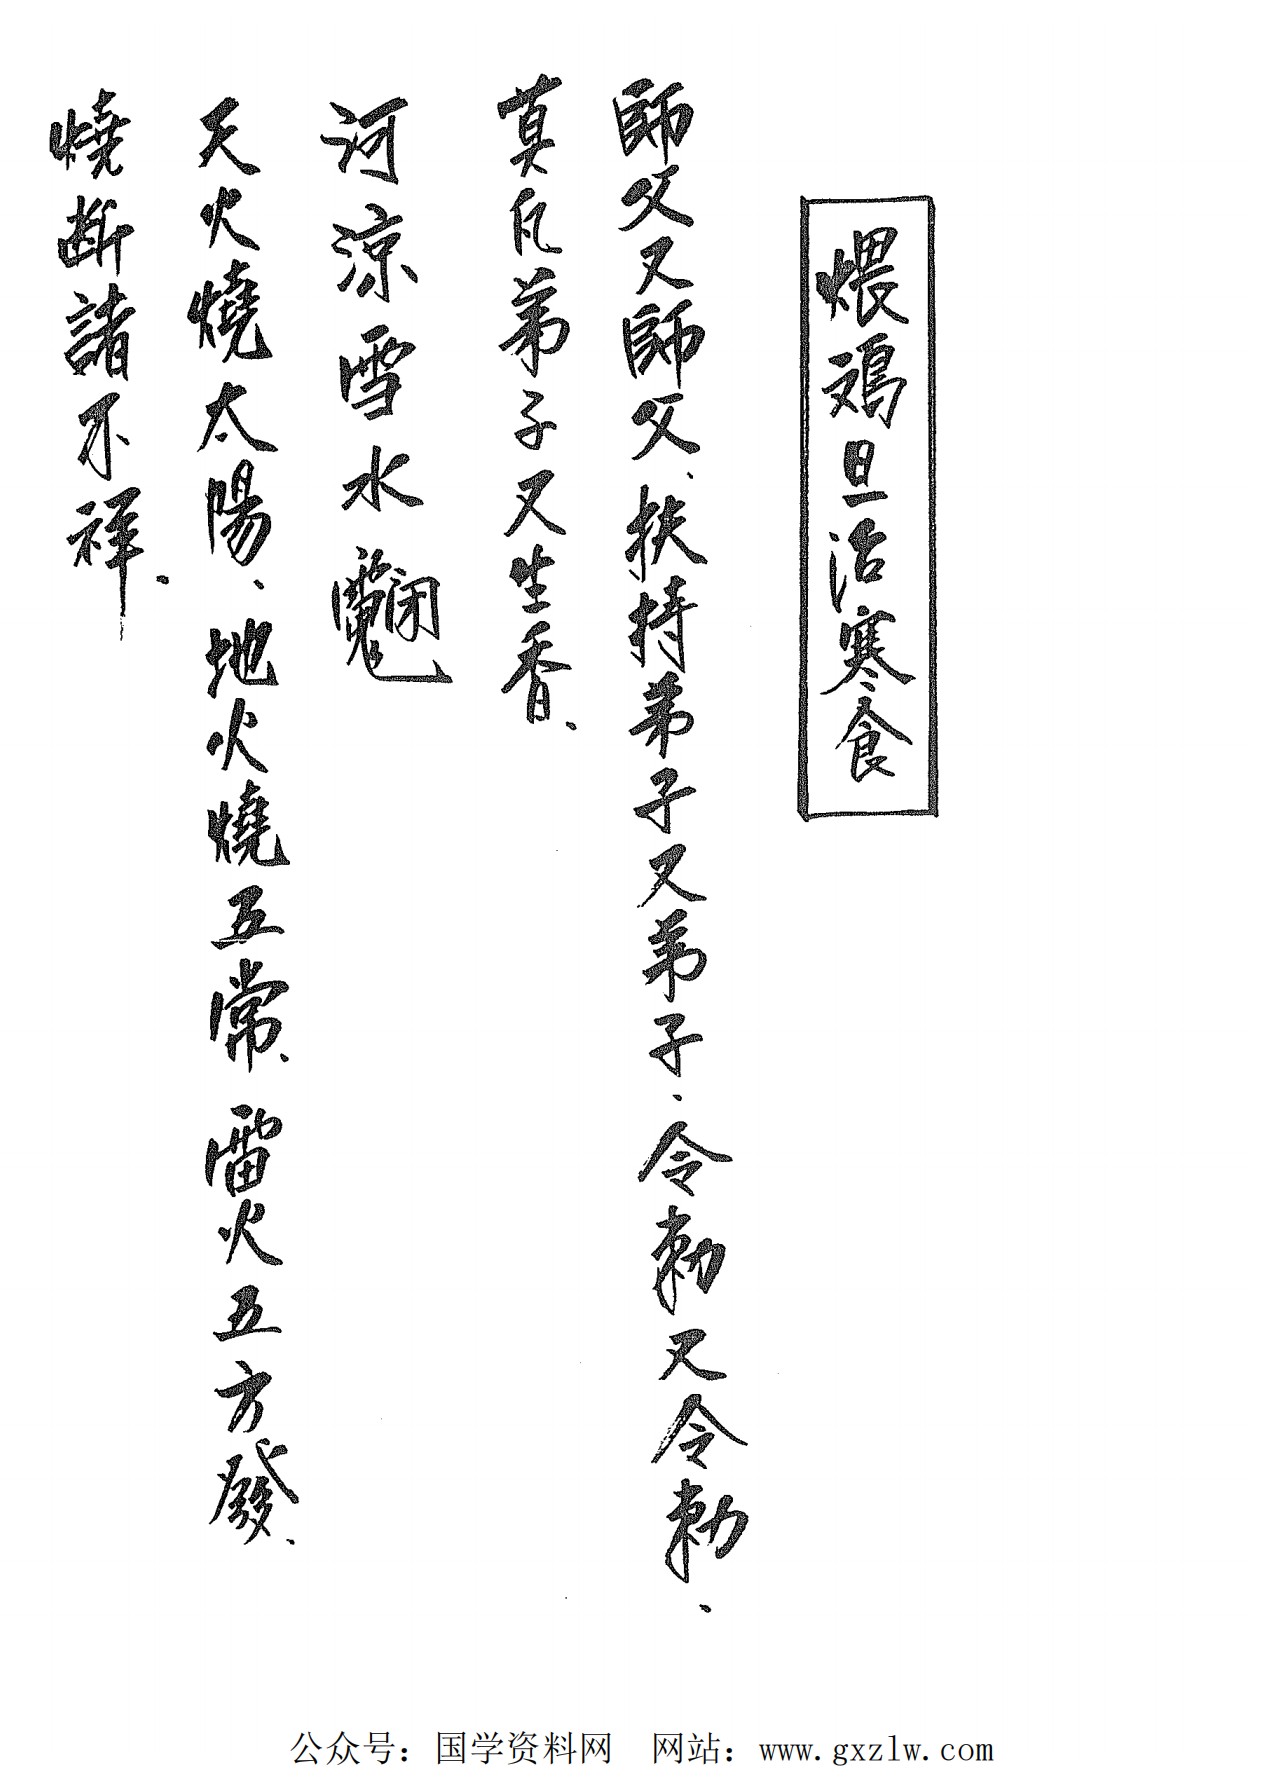 煨鳮旦治寒食
師父又師父、扶持弟子又弟子、令勅又令勅、
莫瓦弟子又生香、
河涼雪水
天火燒太陽、地火燒五常、雷火五方發、
燒斷諸不祥、
公众号：国学资料网 网站：www.gxzlw.com